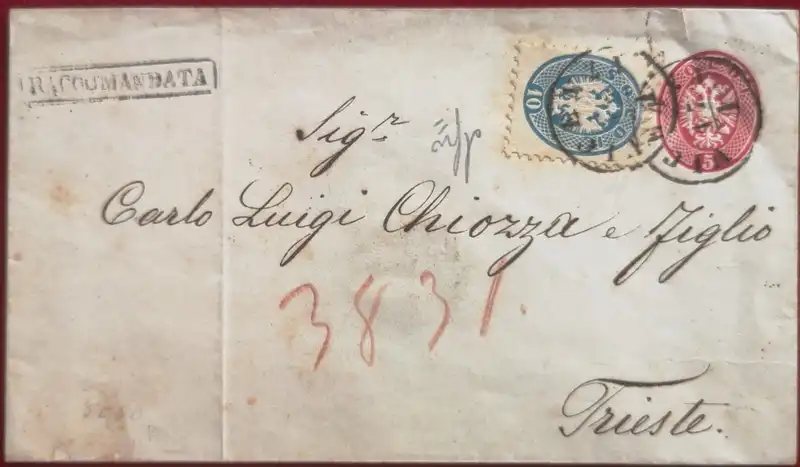 RACCOMANDATA
10 SOLDI
5
Sigr
Carlo Luigi Chiozza e Figlio
3831.
Trieste.